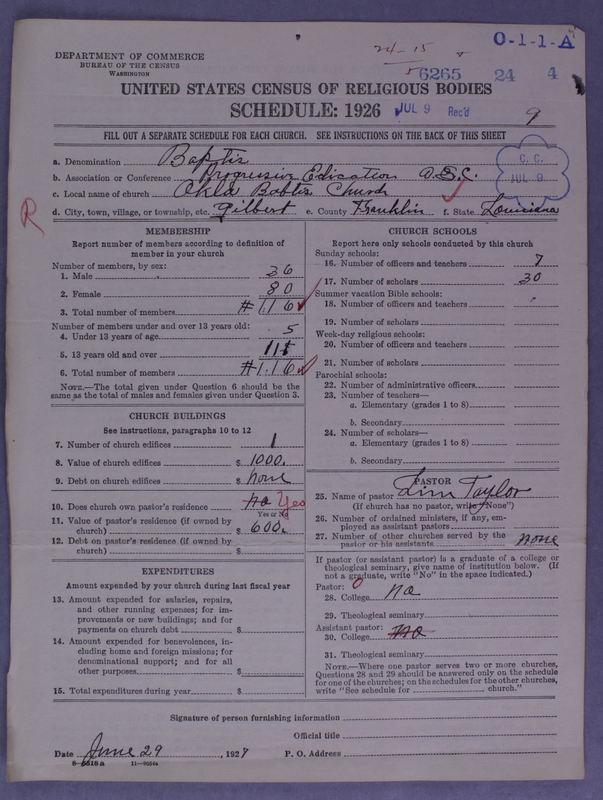 DEPARTMENT OF COMMERCE
BUREAU OF THE CENSUS
WASHINGTON
24-15
0-1-1-A
6265 24 4
UNITED STATES CENSUS OF RELIGIOUS BODIES
SCHEDULE: 1926
JUL 9 Rec'd
9
FILL OUT A SEPARATE SCHEDULE FOR EACH CHURCH. SEE INSTRUCTIONS ON THE BACK OF THIS SHEET
C. C.
JUL 9
a. Denomination Baptis
b. Association or Conference Progressive Edication
c. Local name of church Okla Babtis Church
d. City, town, village, or township, etc. Gilbert e. County Franklin f. State Louisiana
R
MEMBERSHIP
Report number of members according to definition of
member in your church
Number of members, by sex:
1. Male 36
2. Female 80
3. Total number of members # 116
Number of members under and over 13 years old:
4. Under 13 years of age 5
5. 13 years old and over 111
6. Total number of members # 116
NOTE.—The total given under Question 6 should be the
same as the total of males and females given under Question 3.
CHURCH BUILDINGS
See instructions, paragraphs 10 to 12
7. Number of church edifices 1
8. Value of church edifices $ 1000.
9. Debt on church edifices $ none
10. Does church own pastor's residence no Yes
Yes or No
11. Value of pastor's residence (if owned by
church) $ 600.
12. Debt on pastor's residence (if owned by
church) $
EXPENDITURES
Amount expended by your church during last fiscal year
13. Amount expended for salaries, repairs,
and other running expenses; for im-
provements or new buildings; and for
payments on church debt $
14. Amount expended for benevolences, in-
cluding home and foreign missions; for
denominational support; and for all
other purposes $
15. Total expenditures during year $
CHURCH SCHOOLS
Report here only schools conducted by this church
Sunday schools:
16. Number of officers and teachers 7
17. Number of scholars 30
Summer vacation Bible schools:
18. Number of officers and teachers
19. Number of scholars
Week-day religious schools:
20. Number of officers and teachers
21. Number of scholars
Parochial schools:
22. Number of administrative officers
23. Number of teachers—
a. Elementary (grades 1 to 8)
b. Secondary
24. Number of scholars—
a. Elementary (grades 1 to 8)
b. Secondary
PASTOR
25. Name of pastor Lim Taylor
(If church has no pastor, write "None")
26. Number of ordained ministers, if any, em-
ployed as assistant pastors
27. Number of other churches served by the
pastor or his assistants none
If pastor (or assistant pastor) is a graduate of a college or
theological seminary, give name of institution below. (If
not a graduate, write "No" in the space indicated.)
Pastor: 0
28. College no
29. Theological seminary
Assistant pastor:
30. College no
31. Theological seminary
NOTE.—Where one pastor serves two or more churches,
Questions 28 and 29 should be answered only on the schedule
for one of the churches; on the schedules for the other churches,
write "See schedule for church."
Signature of person furnishing information
Official title
Date June 29, 1927 P. O. Address
8-5518a 11-9254a